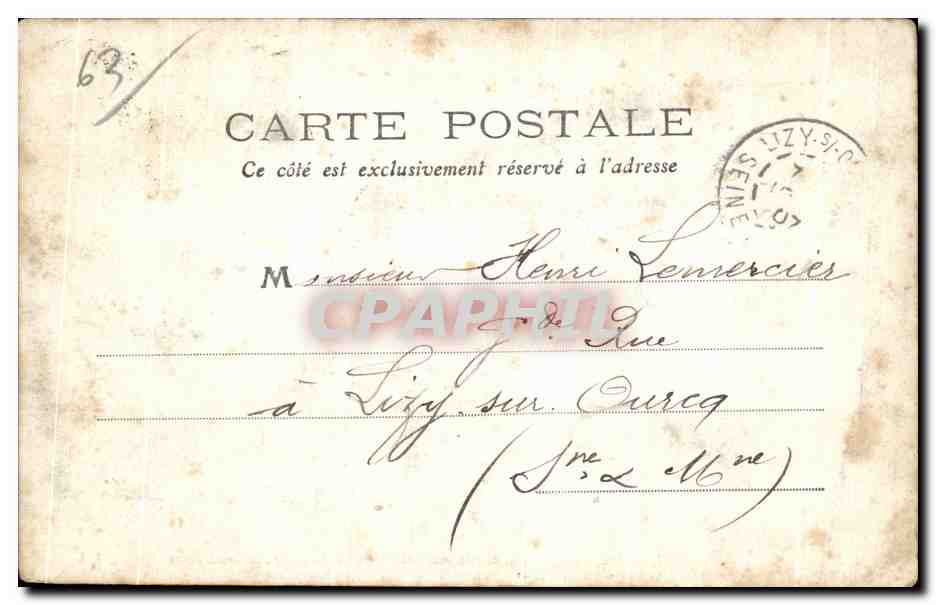 63
CARTE POSTALE
Ce côté est exclusivement réservé à l'adresse
LIZY-S/-O
SEINE
Monsieur Henri Lemercier
CPAPHIL
Gde Rue
à Lizy-sur-Ourcq
(Sne & Mne)